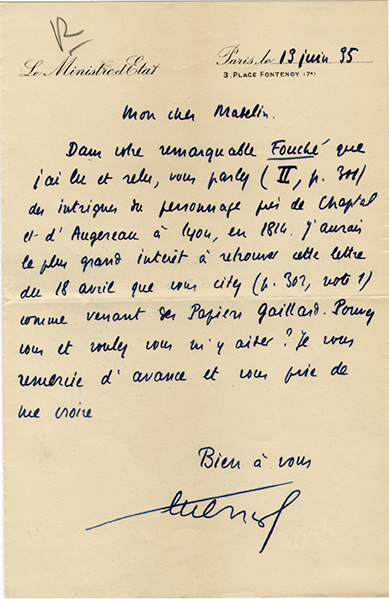 R
Le Ministre d'Etat
Paris, le 13 juin 35
3, PLACE FONTENOY (7e)
Mon cher Madelin.
Dans votre remarquable Fouché que
j'ai lu et relu, vous parlez (II, p. 301)
des intrigues du personnage près de Chaptal
et d'Augereau à Lyon, en 1814. J'aurais
le plus grand intérêt à retrouver cette lettre
du 18 avril que vous citez (p. 302, note 1)
comme venant des Papiers Gaillard. Pouvez
vous et voulez vous m'y aider ? Je vous
remercie d'avance et vous prie de
me croire
Bien à vous